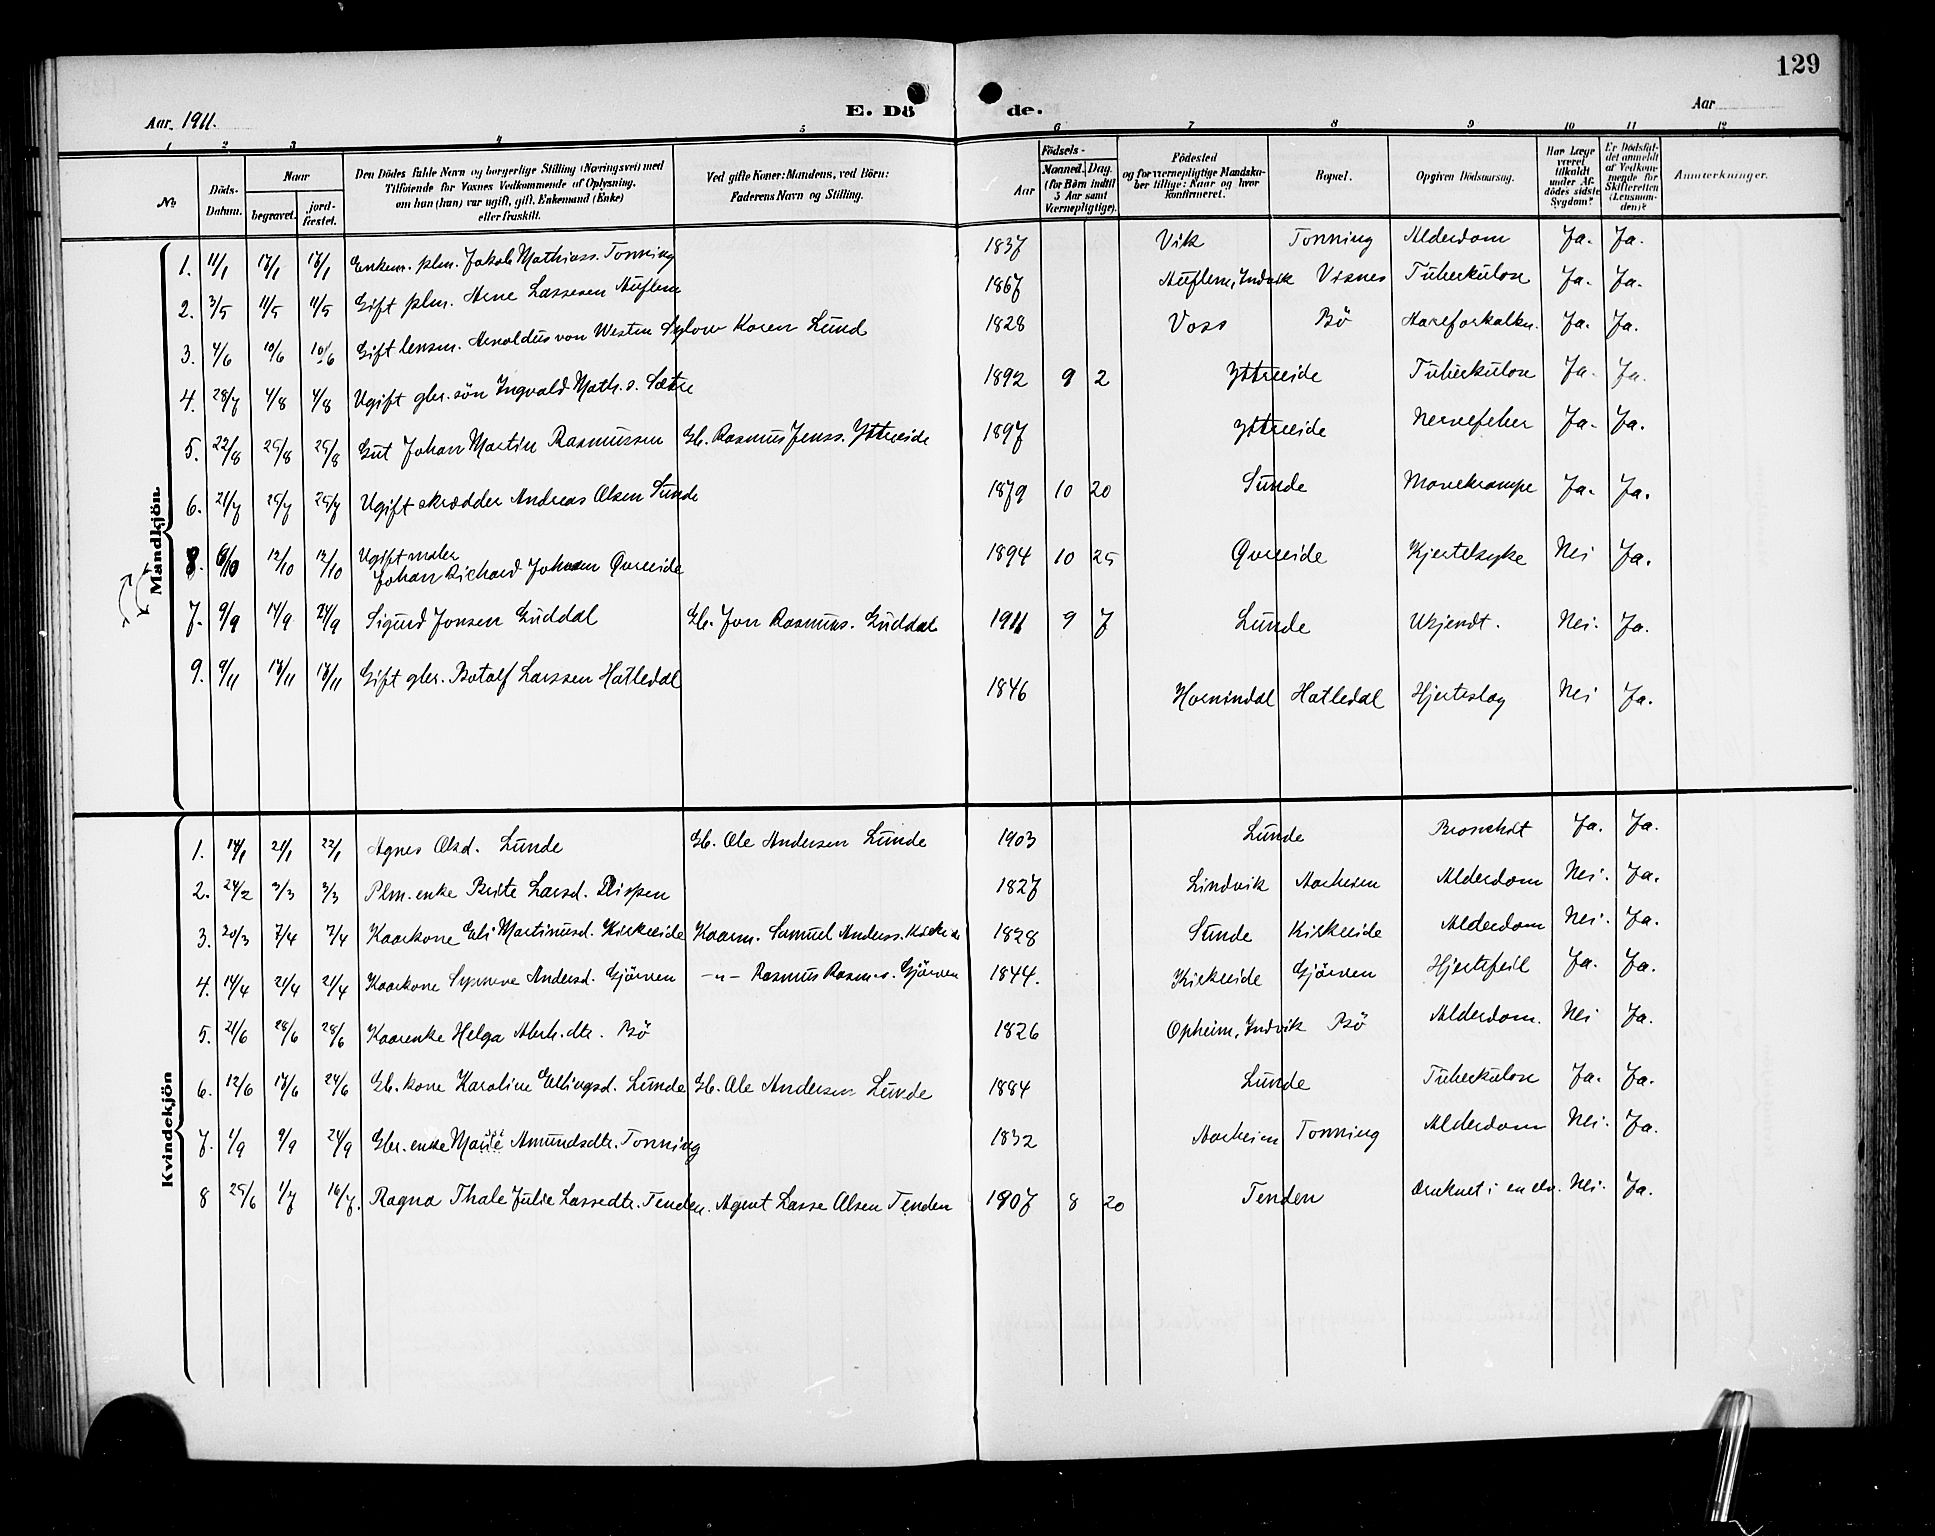 129
Aar 1911. E. Dö de. Aar
1 2 3 4 5 6 7 8 9 10 11 12
No
Döds-Datum.
Naar
begravet.
jord-fæstet.
Den Dödes fulde Navn og borgerlige Stilling (Næringsvei) med
Tilföiende for Voxnes Vedkommende af Oplysning,
om hun (han) var ugift, gift, Enkemand (Enke)
eller fraskilt.
Ved gifte Koner: Mandens, ved Börn:
Faderens Navn og Stilling.
Födsels-
Aar
Maaned. Dag.
(for Börn indtil
5 Aar samt
Værnepligtige).
Födested
og for værnepligtige Mandska-
ber tillige: Naar og hvor
konfirmeret.
Bopæl.
Opgiven Dödsaarsag.
Har Læge
været
tilkaldt
under Af-
dödes sidste
Sygdom?
Er Dödsfal-
det anmeldt
af Vedkom-
mende for
Skifteretten
(Lensman-
den)?
Anmærkninger.
Mandkjön.
1. 11/1 17/1 17/1 Enkem. plm. Jakob Mathiass. Tonning 1837 Vik Tonning Alderdom Ja. Ja.
2. 3/5 11/5 11/5 Gift plm. Arne Lassesen Auflem 1867 Auflem, Indvik Visnes Tuberkulose Ja. Ja.
3. 4/6 10/6 10/6 Gift lensm. Arnoldus von Westen Sylow Koren Lund 1828 Voss Bö Aareforkalkn. Ja. Ja.
4. 28/7 4/8 4/8 Ugift gbr. sön Ingvald Math. s. Sætre 1892 9 2 Yttreeide Tuberkulose Ja. Ja.
5. 22/8 25/8 25/8 Gut Johan Martin Rasmussen Gb. Rasmus Jenss. Yttreeide 1897 Yttreeide Nervefeber Ja. Ja.
6. 21/7 25/7 25/7 Ugift skrædder Andreas Olsen Sunde 1879 10 20 Sunde Mavekrampe Ja. Ja.
8. 6/10 12/10 12/10 Ugift maler
Johan Richard Johnsen Övreeide 1894 10 25 Övreeide Kjertelsyke Nei Ja.
7. 9/9 14/9 24/9 Sigurd Jonsen Guddal Gb. Jon Rasmus. Guddal 1911 9 7 Lunde Ukjendt. Nei. Ja.
9. 9/11 17/11 17/11 Gift gbr. Botolf Larssen Hatledal 1846 Hornindal Hatledal Hjerteslag Nei Ja.
Kvindekjön
1. 14/1 21/1 22/1 Agnes Olsd. Lunde Gb. Ole Andersen Lunde 1903 Lunde Bronchit Ja. Ja.
2. 24/2 3/3 3/3 Plm. enke Brite Larsd. Dispen 1827 Lindvik Aarheim Alderdom Nei. Ja.
3. 20/3 7/4 7/4 Kaarkone Eli Martinusd. Kirkeeide Kaarm. Samuel Anderss. Kirkeeide 1828 Sunde Kirkeeide Alderdom Nei. Ja.
4. 14/4 21/4 21/4 Kaarkone Synneve Andersd. Gjörven -"- Rasmus Rasm. s. Gjörven 1844. Kirkeeide Gjörven Hjertefeil Ja. Ja.
5. 21/6 28/6 28/6 Kaarenke Helga Abrh. dtr. Bö 1826 Opheim, Indvik Bö Alderdom. Nei Ja.
6. 12/6 17/6 24/6 Gb. kone Karoline Ellingsd. Lunde Gb. Ole Andersen Lunde 1884 Lunde Tuberkulose Ja. Ja.
7. 1/9 9/9 24/9 Gbr. enke Amundsdtr. Tonning 1832 Aarheim Tonning Alderdom Nei. Ja.
8 25/6 1/7 16/7. Ragna Thale Julie Lassedtr. Tenden. Agent Lasse Olsen Tenden 1907 8 20 Tenden Druknet i en elv. Nei. Ja.